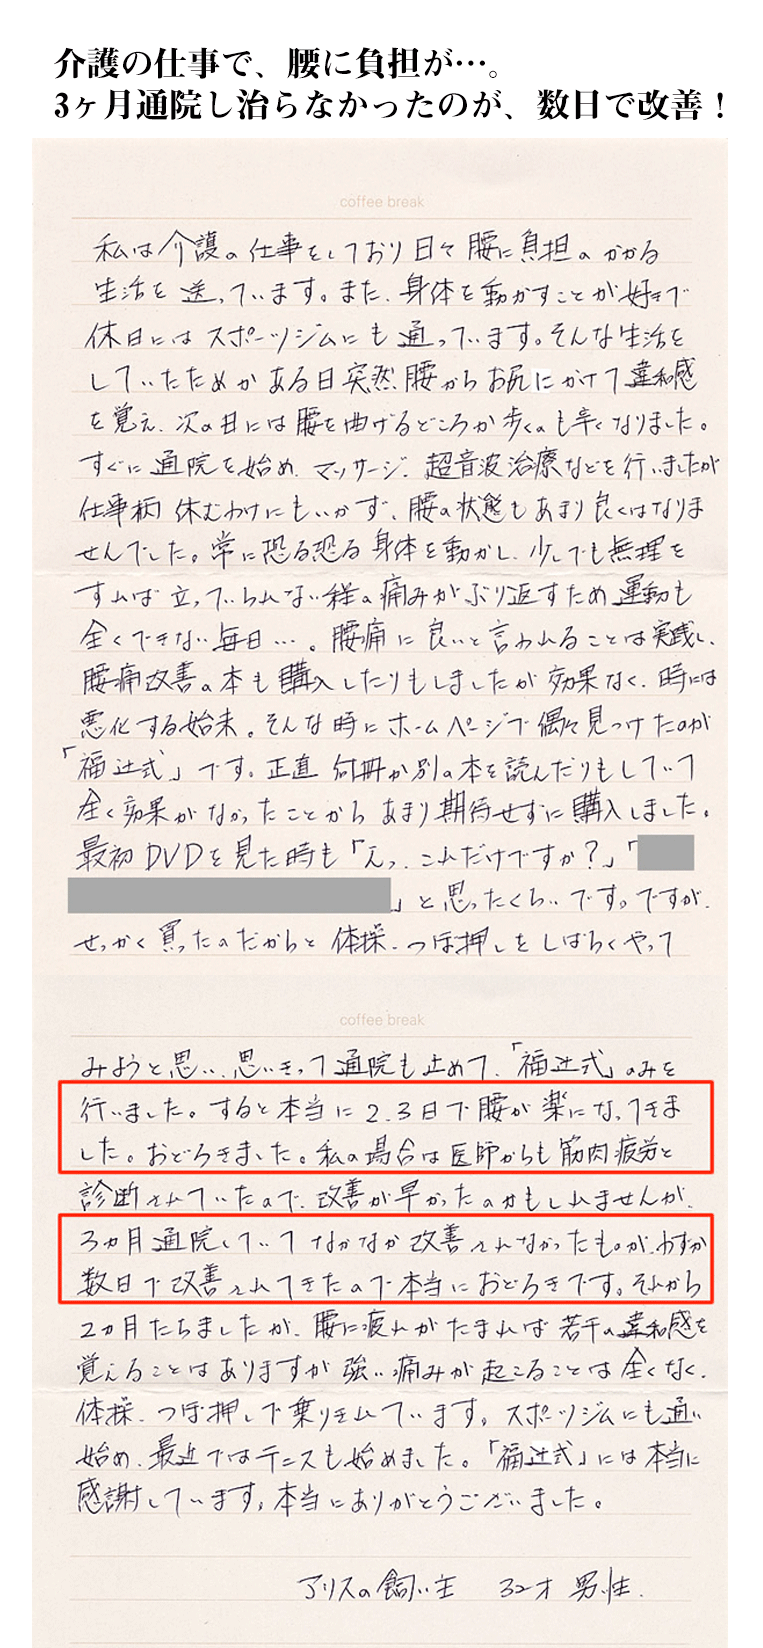 介護の仕事で、腰に負担が…。
3ヶ月通院し治らなかったのが、数日で改善！
coffee break
私は介護の仕事をしており日々腰に負担のかかる
生活を送っています。また、身体を動かすことが好きで
休日にはスポーツジムにも通っています。そんな生活を
していたためかある日突然腰からお尻にかけて違和感
を覚え、次の日には腰を曲げるどころか歩くのも辛くなりました。
すぐに通院を始め、マッサージ、超音波治療などを行いましたが
仕事柄休むわけにもいかず、腰の状態もあまり良くはなりま
せんでした。常に恐る恐る身体を動かし、少しでも無理を
すれば立っていられない程の痛みがぶり返すため運動も
全くできない毎日…。腰痛に良いと言われることは実践し、
腰痛改善の本も購入したりもしましたが効果なく、時には
悪化する始末。そんな時にホームページで偶々見つけたのが
「福辻式」です。正直何冊か別の本を読んだりもしていて
全く効果がなかったことからあまり期待せずに購入しました。
最初DVDを見た時も「えっ、これだけですか？」「
」と思ったくらいです。ですが、
せっかく買ったのだからと体操、つぼ押しをしばらくやって
coffee break
みようと思い、思いきって通院も止めて、「福辻式」のみを
行いました。すると本当に2、3日で腰が楽になってきま
した。おどろきました。私の場合は医師からも筋肉疲労と
診断されていたので、改善が早かったのかもしれませんが、
3ヵ月通院していてなかなか改善されなかったものが、わずか
数日で改善されてきたので本当におどろきです。それから
2ヵ月たちましたが、腰に疲れがたまれば若干の違和感を
覚えることはありますが強い痛みが起こることは全くなく、
体操、つぼ押しで乗りきれています。スポーツジムにも通い
始め、最近ではテニスも始めました。「福辻式」には本当に
感謝しています。本当にありがとうございました。
アリスの飼い主 32才 男性.